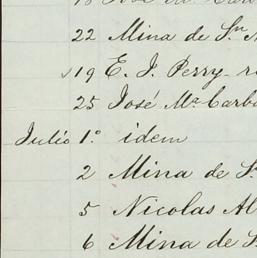 22 Mina de Sn
19 E. J. Perry
25 José Ma Carb
Julio 1.º idem
2 Mina de S
5 Nicolas Al
6 Mina de S